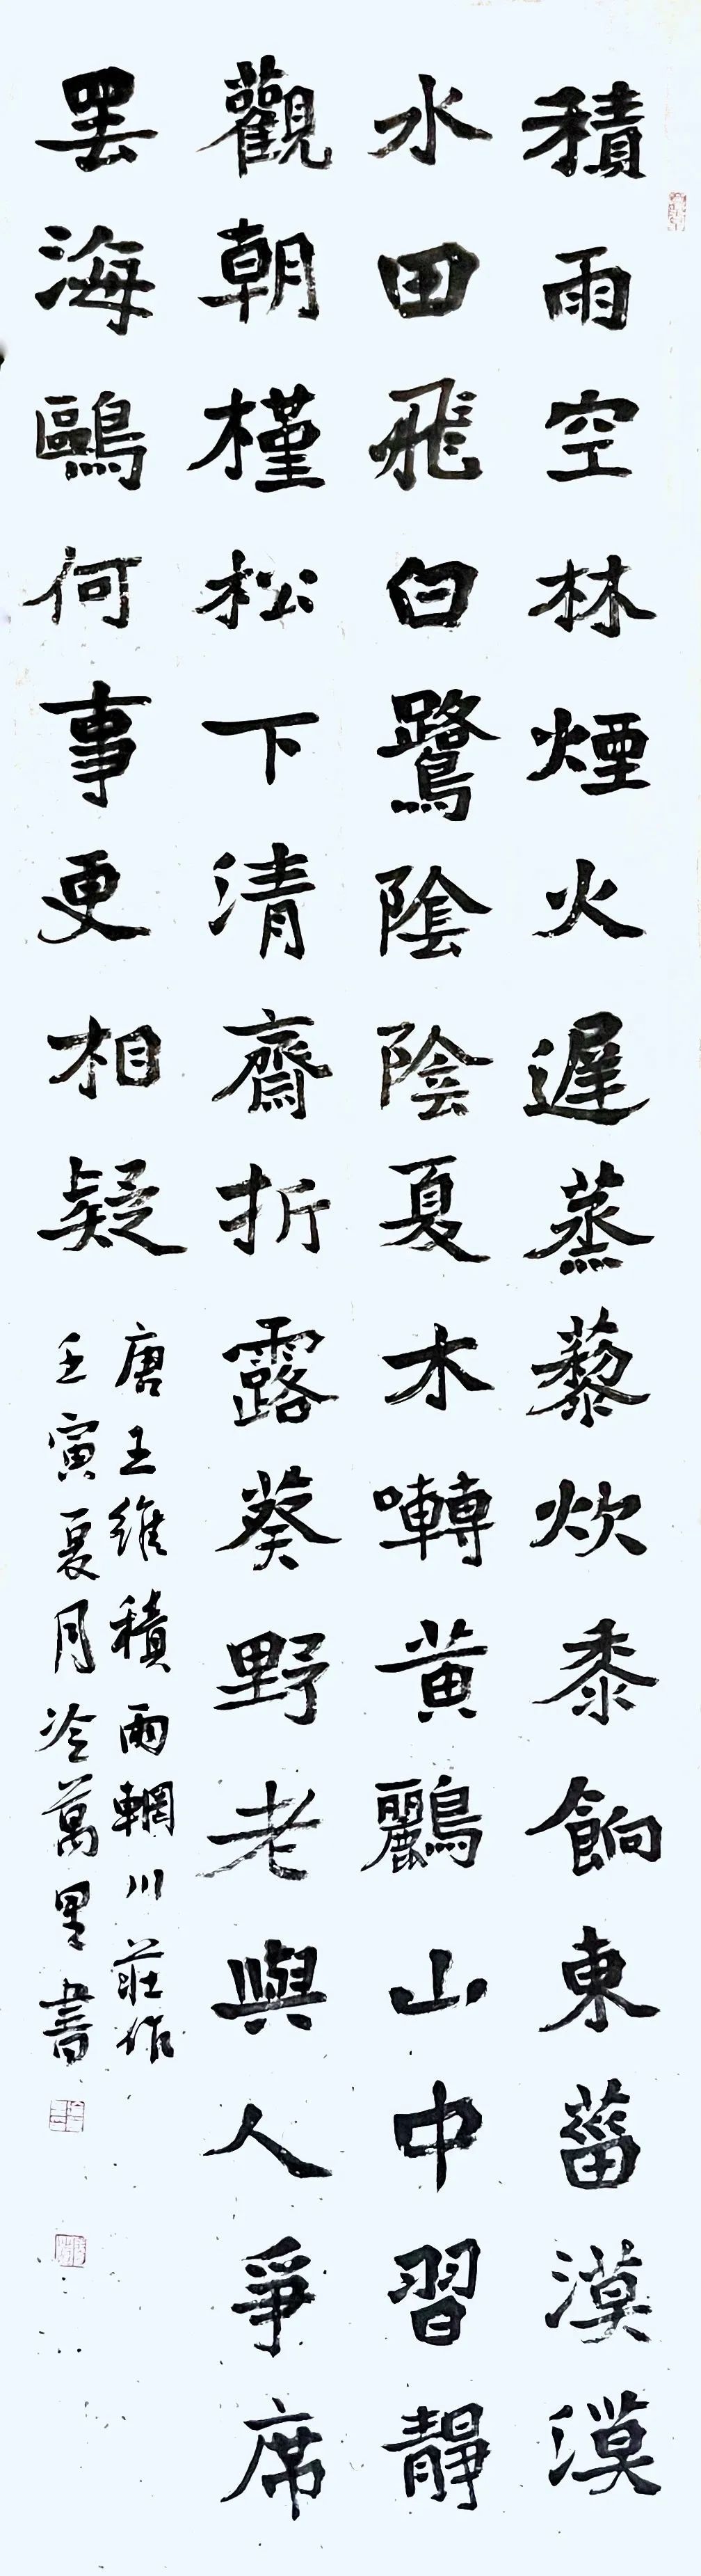 積雨空林煙火遲蒸藜炊黍餉東菑漠漠
水田飛白鷺陰陰夏木囀黃鸝山中習靜
觀朝槿松下清齋折露葵野老與人爭席
罷海鷗何事更相疑
唐王維積雨輞川莊作
壬寅夏月冷萬里書